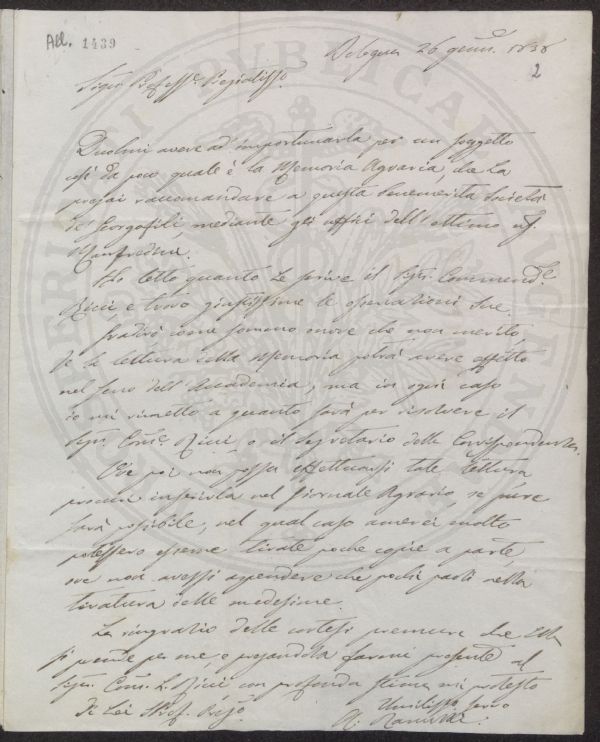 All. 1439
Bologna 26 genn.º 1838
2
Sigr. Profess.e Pregiatiss.º
Duolmi avere ad importunarla per un soggetto
così da poco quale è la Memoria Agraria, che La
pregai raccomandare a questa benemerita Società
de' Georgofili mediante gli uffici dell'ottimo
Manfredini.
Ho letto quanto Le scrive il Sigr. Commend.e
Ricci e trovo giustissime le osservazioni Sue.
Gradirò come sommo onore che non merito,
se la lettura della Memoria potrà avere effetto
nel seno dell'Accademia, ma in ogni caso
io mi rimetto a quanto sarà per risolvere il
Sigr. Com.e Ricci, o il Segretario delle Corrispondenze.
Ove poi non possa effettuarsi tale lettura,
procuri inserirla nel Giornale Agrario, se pure
sarà possibile, nel qual caso amerei molto
potessero esserne tirate poche copie a parte,
ove non avessi a spendere che pochi paoli nella
tiratura delle medesime.
La ringrazio delle cortesi premure che Ella
si prende per me, e pregandola farmi presente al
Sigr. Com.e L. Ricci con profonda stima mi protesto
Di Lei Sig. Prof. Preg.º
Umiliss.º Servo